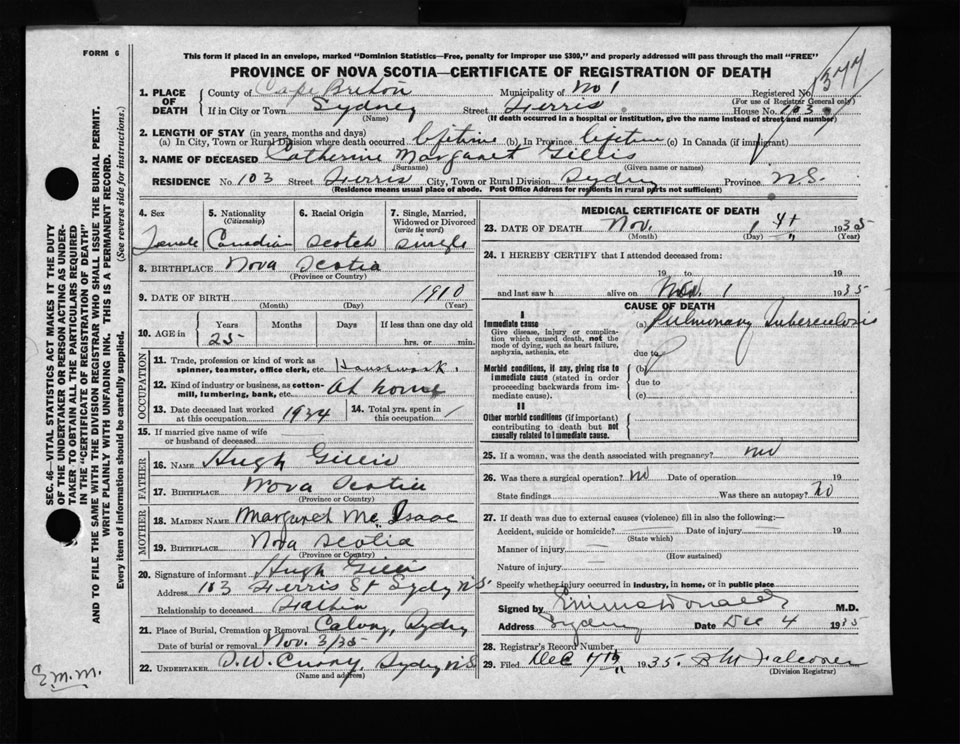 FORM 6
This form if placed in an envelope, marked "Dominion Statistics—Free, penalty for improper use $300," and properly addressed will pass through the mail "FREE"
PROVINCE OF NOVA SCOTIA—CERTIFICATE OF REGISTRATION OF DEATH
1. PLACE OF DEATH
County of Cape Breton Municipality of No 1 Registered No.
(For use of Registrar General only)
If in City or Town Sydney Street Ferris House No. 103
(Name) (If death occurred in a hospital or institution, give the name instead of street and number)
2. LENGTH OF STAY (in years, months and days)
(a) In City, Town or Rural Division where death occurred lifetime (b) In Province lifetime (c) In Canada (if immigrant)
3. NAME OF DECEASED Catherine Margaret Gillis
(Surname) (Given name or names)
RESIDENCE No. 103 Street Ferris City, Town or Rural Division Sydney Province N.S.
(Residence means usual place of abode. Post Office Address for residents in rural parts not sufficient)
4. Sex Female
5. Nationality (Citizenship) Canadian
6. Racial Origin Scotch
7. Single, Married, Widowed or Divorced (write the word) Single
8. BIRTHPLACE Nova Scotia
(Province or Country)
9. DATE OF BIRTH 1910
(Month) (Day) (Year)
10. AGE in Years Months Days If less than one day old
25 hrs. or min.
OCCUPATION
11. Trade, profession or kind of work as spinner, teamster, office clerk, etc. Housework.
12. Kind of industry or business, as cotton-mill, lumbering, bank, etc. At home
13. Date deceased last worked at this occupation 1934
14. Total yrs. spent in this occupation
15. If married give name of wife or husband of deceased
FATHER
16. NAME Hugh Gillis
17. BIRTHPLACE Nova Scotia
(Province or Country)
MOTHER
18. MAIDEN NAME Margaret Mc Isaac
19. BIRTHPLACE Nova Scotia
(Province or Country)
20. Signature of informant Hugh Gillis
Address 103 Ferris St Sydney N.S.
Relationship to deceased Father
21. Place of Burial, Cremation or Removal Calvary, Sydney
Date of burial or removal Nov. 3/35
22. UNDERTAKER D.W. Curry Sydney N.S
(Name and address)
MEDICAL CERTIFICATE OF DEATH
23. DATE OF DEATH Nov. 1st 1935
(Month) (Day) (Year)
24. I HEREBY CERTIFY that I attended deceased from:
19 to 19
and last saw h alive on Nov. 1 1935
CAUSE OF DEATH
I
Immediate cause (a) Pulmonary Tuberculosis
Give disease, injury or complication which caused death, not the mode of dying, such as heart failure, asphyxia, asthenia, etc.
due to
Morbid conditions, if any, giving rise to immediate cause (stated in order proceeding backwards from immediate cause).
(b)
due to
(c)
II
Other morbid conditions (if important) contributing to death but not causally related to immediate cause.
25. If a woman, was the death associated with pregnancy? no
26. Was there a surgical operation? no Date of operation 19
State findings Was there an autopsy? no
27. If death was due to external causes (violence) fill in also the following:—
Accident, suicide or homicide? Date of injury 19
(State which)
Manner of injury
(How sustained)
Nature of injury
Specify whether injury occurred in industry, in home, or in public place
Signed by M.D.
Address Sydney Date Dec 4 1935
28. Registrar's Record Number
29. Filed Dec 7th 1935. Falconer
(Division Registrar)
SEC. 46—VITAL STATISTICS ACT MAKES IT THE DUTY OF THE UNDERTAKER OR PERSON ACTING AS UNDERTAKER TO OBTAIN ALL THE PARTICULARS REQUIRED IN THE "CERTIFICATE OF REGISTRATION OF DEATH" AND TO FILE THE SAME WITH THE DIVISION REGISTRAR WHO SHALL ISSUE THE BURIAL PERMIT.
WRITE PLAINLY WITH UNFADING INK. THIS IS A PERMANENT RECORD.
Every item of information should be carefully supplied. (See reverse side for instructions.)
E.M.M.